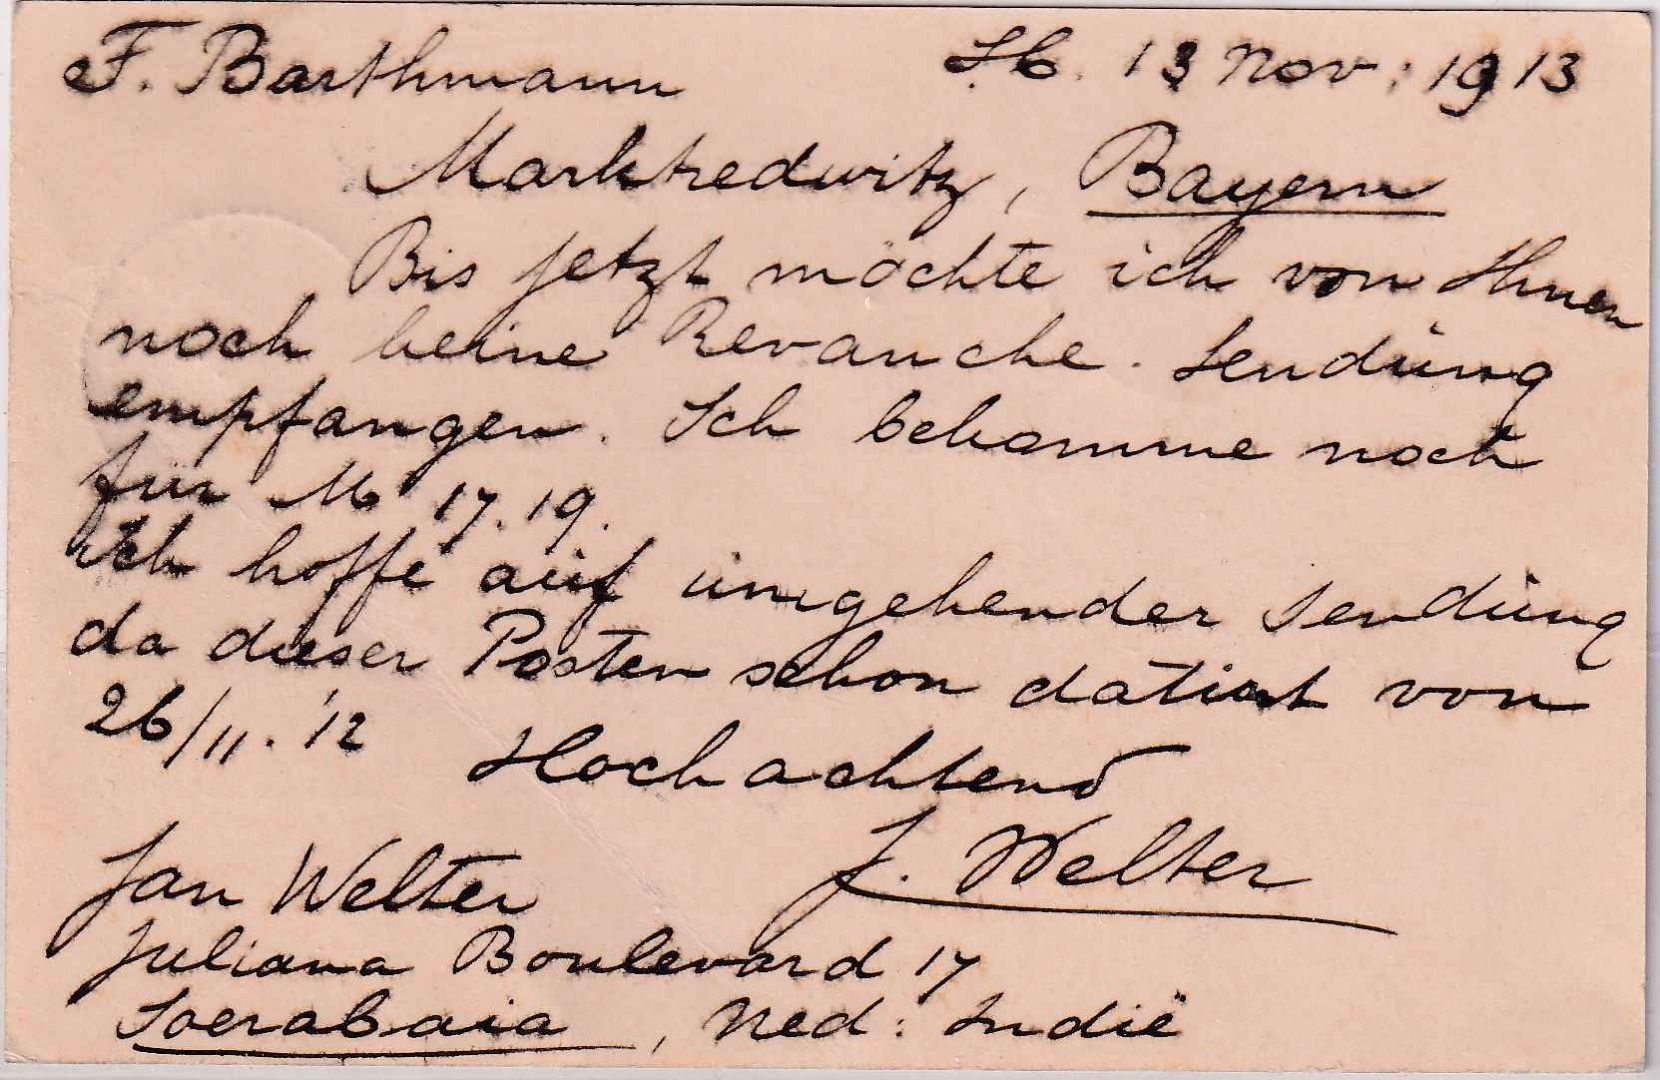 F. Barthmann Sb. 13 Nov: 1913
Marktredwitz, Bayern
Bis jetzt möchte ich von Ihnen
noch keine Revanche. Sendung
empfangen. Ich bekomme noch
für M 17.19.
Ich hoffe auf umgehender Sendung
da dieser Posten schon datirt von
26/11. '12
Hochachtend
J. Welter
Jan Welter
Juliana Boulevard 17
Soerabaia, Ned: Indië